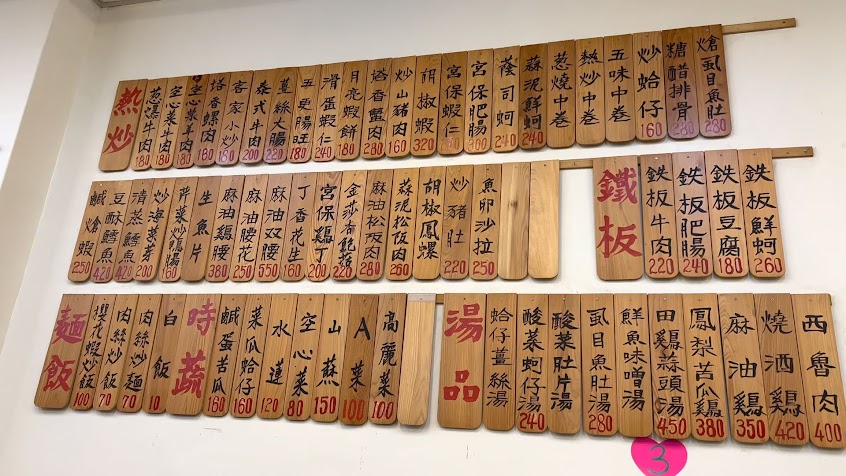 熱炒
蔥爆牛肉 180
空心菜牛肉 180
空心菜羊肉 180
塔香螺肉 180
客家小炒 180
泰式牛肉 200
薑絲大腸 220
五更腸旺 180
滑蛋蝦仁 240
月亮蝦餅 180
塔香蟹肉 280
炒山豬肉 160
胡椒蝦 320
宮保蝦仁
宮保肥腸
蔭司蚵 240
蒜泥鮮蚵 240
蔥燒中卷
熱炒中卷
五味中卷
炒蛤仔 160
糖醋排骨 280
熗虱目魚肚 280
鹹熗蝦 250
豆酥鱈魚 420
清蒸鱈魚 420
炒海菜芽 200
芹菜炒鴨腸 160
生魚片
麻油雞腰 380
麻油腰花 250
麻油双腰 550
丁香花生 160
宮保鷄丁 200
金莎杏鮑菇 220
麻油松阪肉 280
蒜泥松阪肉 260
胡椒鳳螺
炒豬肚 220
魚卵沙拉 250
鐵板
鉄板牛肉 220
鉄板肥腸 240
鉄板豆腐 180
鉄板鮮蚵 260
麵飯
櫻花蝦炒飯 100
肉絲炒飯 70
肉絲炒麵 70
白飯 10
時蔬
鹹蛋苦瓜 160
菜瓜蛤仔 160
水蓮 120
空心菜 80
山蘇 150
A菜 100
高麗菜 100
湯品
蛤仔薑絲湯
酸菜蚵仔湯 240
酸菜肚片湯
虱目魚肚湯 280
鮮魚味噌湯
田鷄蒜頭湯 450
鳳梨苦瓜鷄 380
麻油鷄 350
燒酒鷄 420
西魯肉 400
3